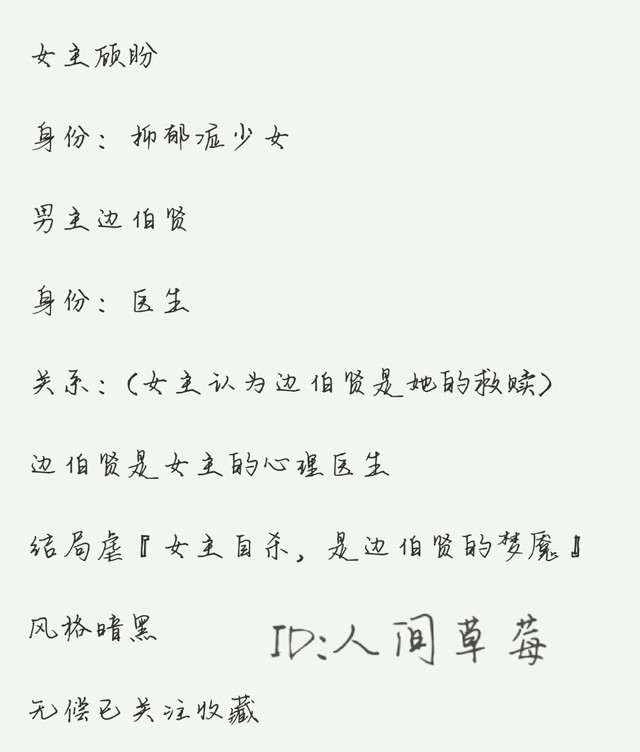 女主顾盼
身份：抑郁症少女
男主边伯贤
身份：医生
关系：(女主认为边伯贤是她的救赎)
边伯贤是女主的心理医生
结局虐『女主自杀，是边伯贤的梦魇』
风格暗黑
ID:人间草莓
无偿已关注收藏